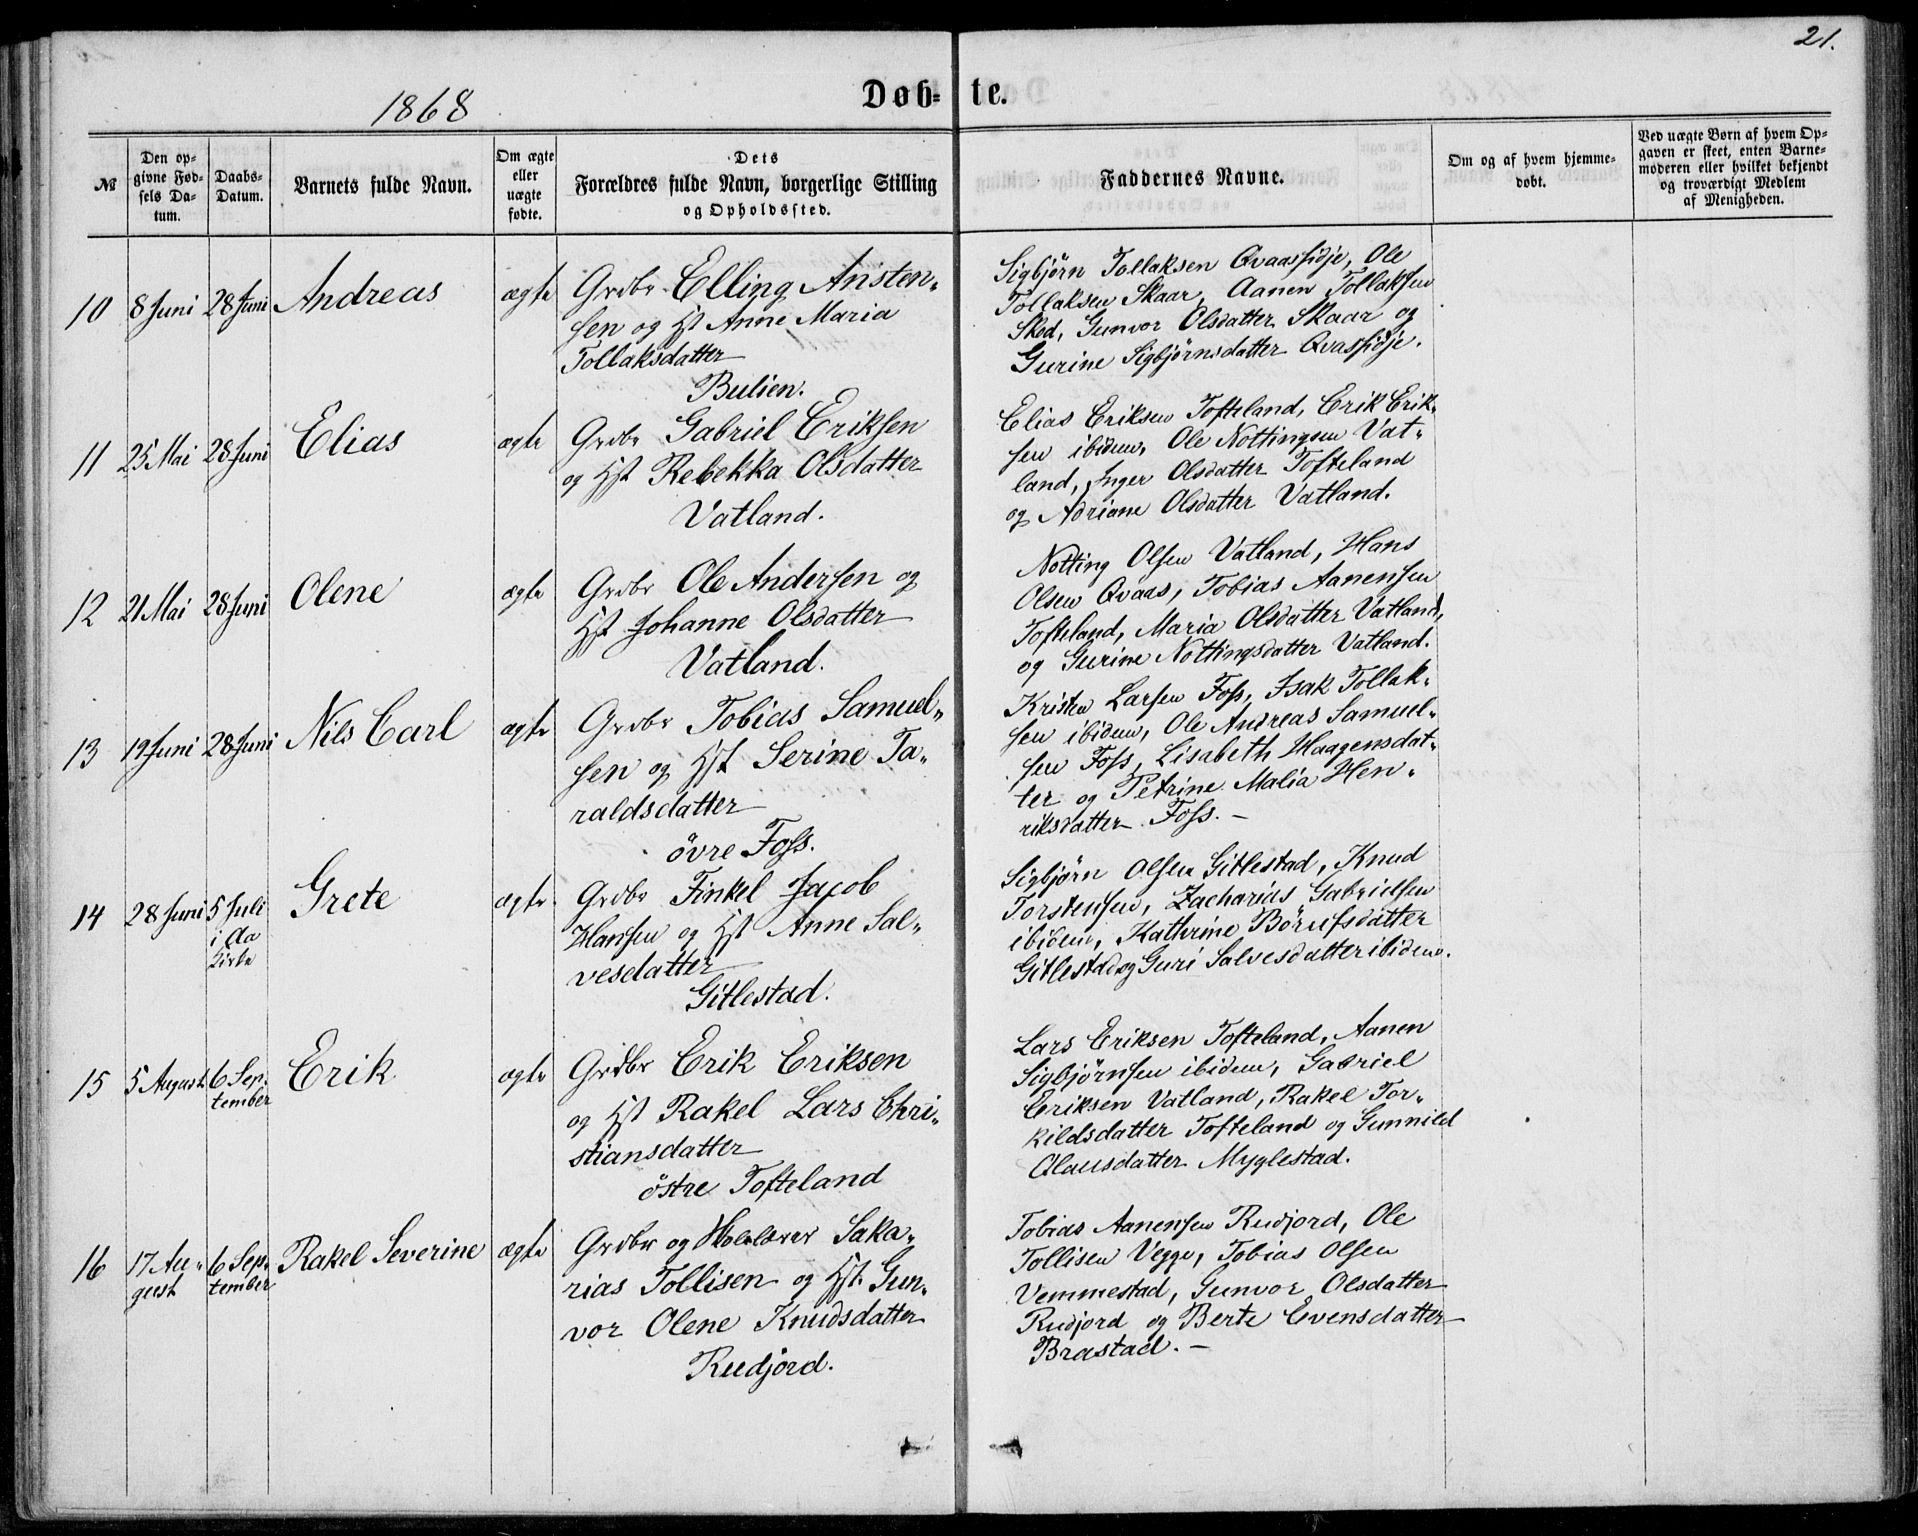 21.
1868
Døb-te.
№
Den op-
givne Fød-
sels Da-
tum.
Daabs-
Datum.
Barnets fulde Navn.
Om ægte
eller
uægte
fødte.
Dets
Forældres fulde Navn, borgerlige Stilling
og Opholdssted.
Faddernes Navne.
Om og af hvem hjemme-
døbt.
Ved uægte Børn af hvem Op-
gaven er skeet, enten Barne-
moderen eller hvilket bekjendt
og troværdigt Medlem
af Menigheden.
10 8 Juni 28 Juni Andreas ægte
Grdbr Elling Ansten-
sen og Hst Anne Maria
Tollaksdatter
Bulien.
Sigbjörn Tollaksen Qvaassidje, Ole
Tollaksen Skaar, Aanen Tollaksen
Sked, Gunvor Olsdatter Skaar og
Gurine Sigbjörnsdatter Qvassidje.
11 25 Mai 28 Juni Elias ægte
Grdbr Gabriel Eriksen
og Hst Rebekka Olsdatter
Vatland.
Elias Eriksen Tofteland, Erik Erik-
sen ibidem, Ole Nottingsen Vat-
land, Inger Olsdatter Tofteland
og Adriane Olsdatter Vatland.
12 21 Mai 28 Juni Olene ægte
Grdbr Ole Andersen og
Hst Johanne Olsdatter
Vatland.
Notting Olsen Vatland, Hans
Olsen Qvaas, Tobias Aanensen
Tofteland, Maria Olsdatter Vatland,
og Gurine Nottingsdatter Vatland.
13 19 Juni 28 Juni Nils Carl ægte
Grdbr Tobias Samuel-
sen og Hst Serine Ta-
raldsdatter
övre Foss.
Kristen Larsen Foss, Isak Tollak-
sen ibidem, Ole Andreas Samuel-
sen Foss, Lisabeth Haagensdat-
ter og Petrine Malia Hen-
riksdatter Foss. -
14 28 Juni 5 Juli
i Aa
Kirke
Grete ægte
Grdbr Finkel Jacob
Hansen og Hst Anne Sal-
vesdatter
Gitlestad.
Sigbjörn Olsen Gitlestad, Knud
Torstensen, Zacharias Gabrielsen
ibidem, Kathrine Börufsdatter
Gitlestad og Guri Salvesdatter ibidem.
15 5 August 6 Sep-
tember
Erik ægte
Grdbr Erik Eriksen
og Hst Rakel Lars Chri-
stiansdatter
östre Tofteland
Lars Eriksen Tofteland, Aanen
Sigbjörnsen ibidem, Gabriel
Eriksen Vatland, Rakel Tor-
kildsdatter Tofteland og Gunnild
Olausdatter Myglestad.
16 17 Au-
gust
6 Sep-
tember
Rakel Severine ægte
Grdbr og Saka-
rias Tollisen og Hst Gun-
vor Olene Knudsdatter
Rudjord.
Tobias Aanensen Rudjord, Ole
Tollisen Vegge, Tobias Olsen
Vemmestad, Gunvor Olsdatter
Rudjord og Berte Evensdatter
Brastad. -